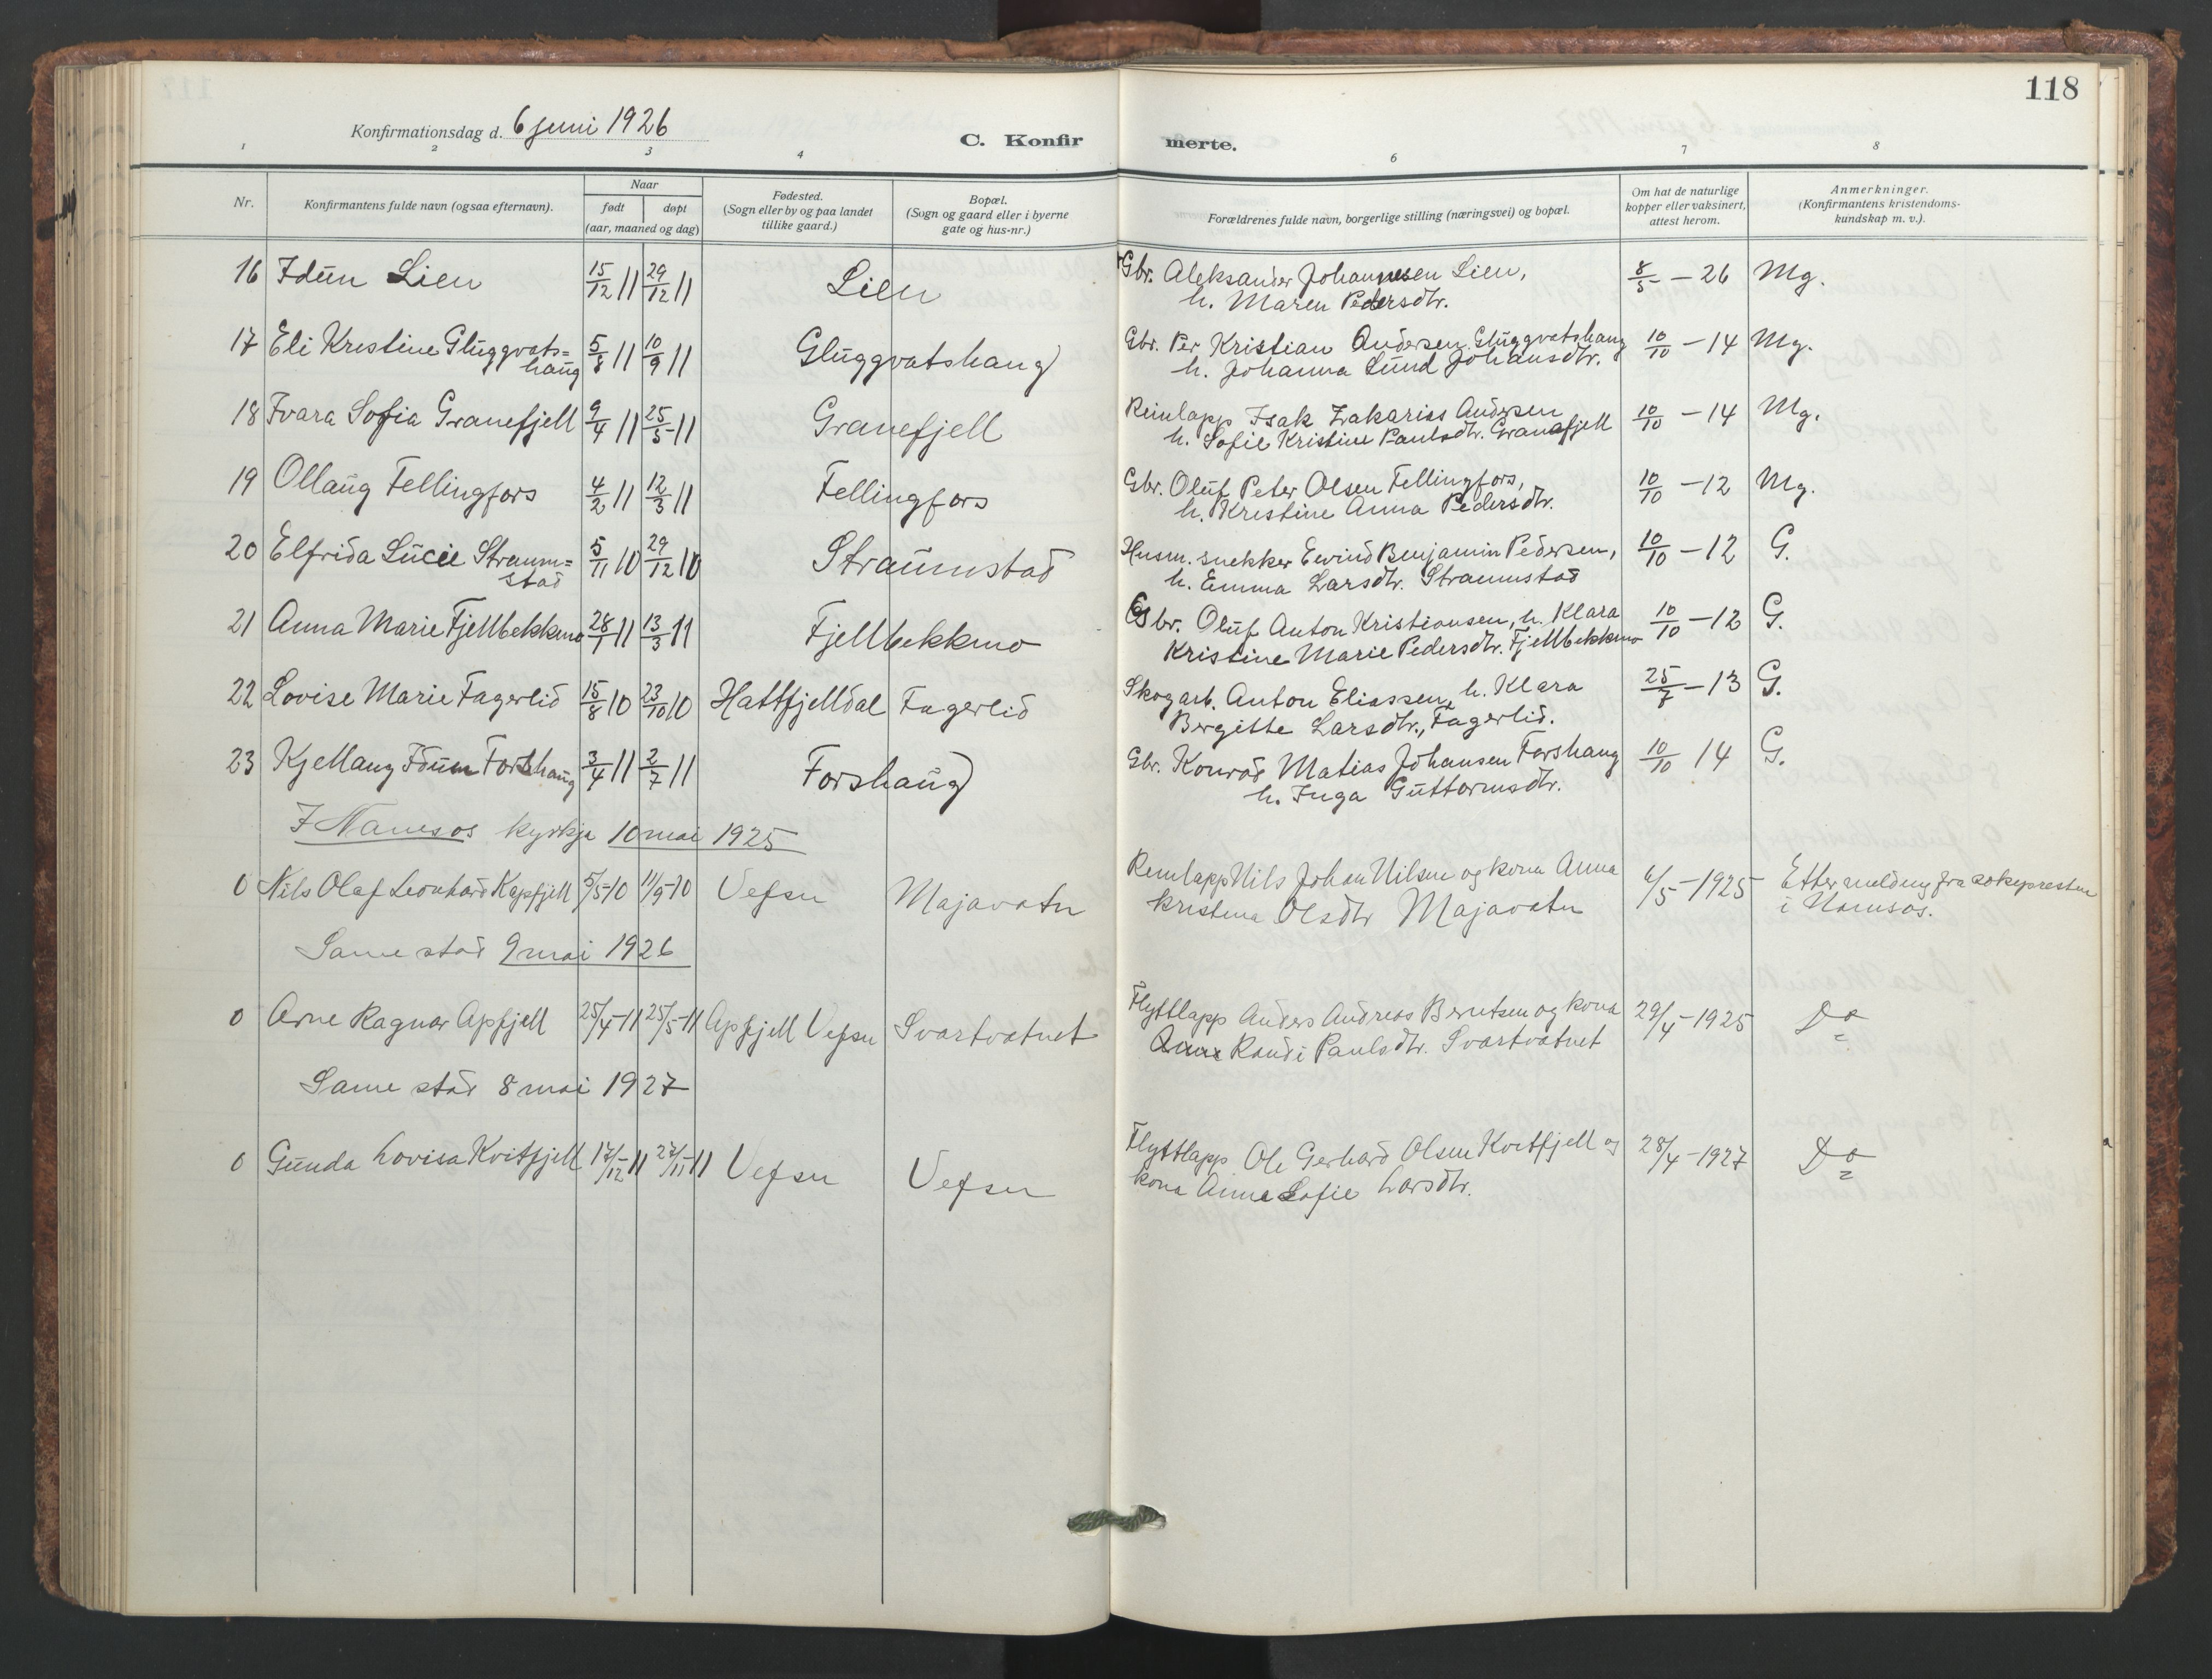 118
Konfirmationsdag d. 6 juni 1926
C. Konfirmerte.
1 2 3 4 6 7 8
Nr.
Konfirmantens fulde navn (ogsaa efternavn).
Naar
født døpt
(aar, maaned og dag)
Fødested.
(Sogn eller by og paa landet
tillike gaard.)
Bopæl.
(Sogn og gaard eller i byerne
gate og hus-nr.)
Forældrenes fulde navn, borgerlige stilling (næringsvei) og bopæl.
Om hat de naturlige
kopper eller vaksinert,
attest herom.
Anmerkninger.
(Konfirmantens kristendoms-
kundskap m. v.).
16 Idun Lien 15/12 11 29/12 11 Lien Gbr. Aleksander Johannesen Lien, 8/5 – 26 Mg.
h. Maren Pedersdtr.
17 Eli Kristine Gluggvats= 5/8 11 10/9 11 Gluggvatshaug Gbr. Per Kristian Andersen Gluggvatshaug 10/10 – 14 Mg.
haug h. Johanna Lund Johansdtr.
18 Ivara Sofia Granefjell 9/4 11 25/5 11 Granefjell Reinlapp Isak Zakarias Andersen 10/10 – 14 Mg.
h. Sofie Kristine Paulsdtr. Granefjell
19 Ollaug Fellingfors 4/2 11 12/3 11 Fellingfors Gbr. Oluf Peter Olsen Fellingfors, 10/10 – 12 Mg.
h. Kristine Anna Pedersdtr.
20 Elfrida Lucie Straum= 5/11 10 29/12 10 Straumstad Husm. snekker Eivind Benjamin Pedersen, 10/10 – 12 G.
stad h. Emma Larsdtr. Straumstad
21 Anna Marie Fjellbekkmo 28/1 11 13/3 11 Fjellbekkmo Gbr. Oluf Anton Kristiansen, h. Klara 10/10 – 12 G.
Kristine Marie Pedersdtr. Fjellbekkmo
22 Lovise Marie Fagerlid 15/8 10 23/10 10 Hattfjelldal Fagerlid Skogarb. Anton Eliassen, h. Klara 25/7 – 13 G.
Bergitte Larsdtr., Fagerlid.
23 Kjellaug Idun Forshaug 3/4 11 2/7 11 Forshaug Gbr. Konrad Matias Johansen Forshaug 10/10 14 G.
h. Inga Guttormsdtr.
I Namsos kyrkje 10 mai 1925
0 Nils Olaf Leonhard Kapfjell 5/5-10 11/9-10 Vefsn Majavatn Reinlapp Nils Johan Nilsen og kona Anna 6/5 – 1925 Etter melding fra sokepresten
Kristina Olsdtr Majavatn i Namsos.
Same stad 9 mai 1926
0 Arne Ragnar Apfjell 25/4-11 25/5-11 Apfjell Vefsn Svartvatnet Flyttlapp Anders Andreas Berntsen og kona 29/4 – 1925 Do
Randi Paulsdtr. Svartvatnet
Same stad 8 mai 1927
0 Gunda Lovisa Kvitfjell 17/12-11 27/11-11 Vefsn Vefsn Flyttlapp Ole Gerhard Olsen Kvitfjell og 28/4 – 1927 Do
kona Anna Sofie Larsdtr.